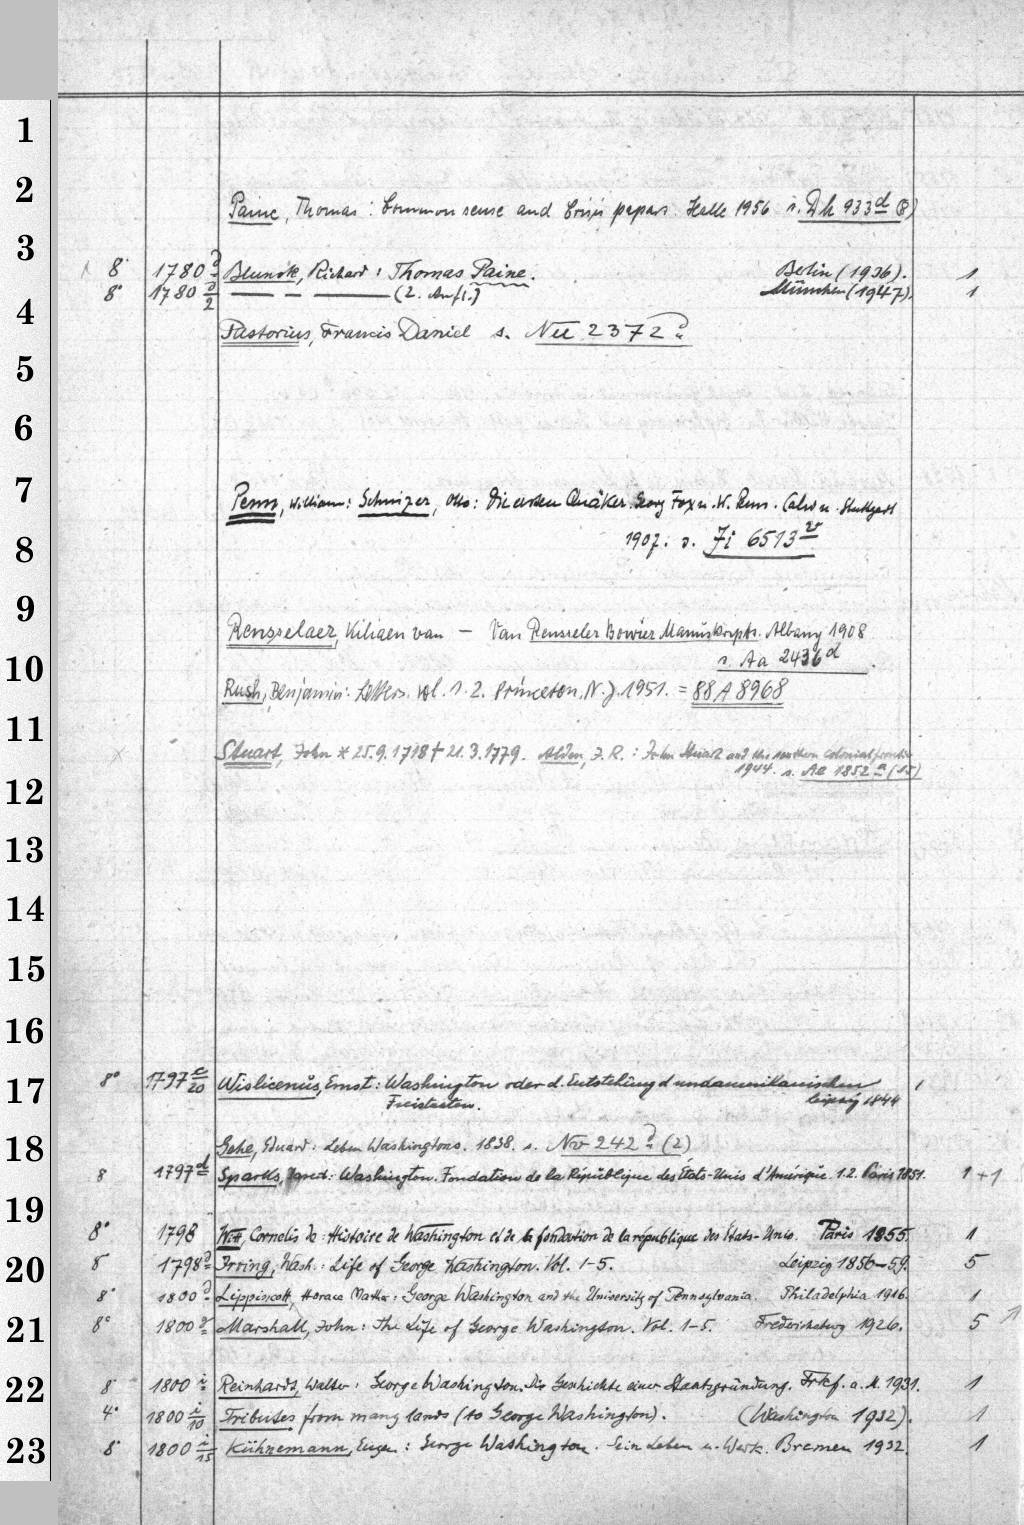 1
2
Paine, Thomas: Common sense and Crisis papers. Halle 1956 s. Dk 933 d (8)
3
8° 1780 d Blunck, Richard: Thomas Paine. Berlin (1936). 1
8° 1780 d/2 — — — (2. Aufl.) München (1947). 1
4
Pastorius, Francis Daniel s. Nu 2372
5
6
7
Penn, William: Schnizer, Otto: Die ersten Quäker. Georg Fox u. W. Penn. Calw u. Stuttgart
8
1907. s. Ji 6513
9
Rensselaer, Kiliaen van — Van Rensseler Bowier Manuskripts. Albany 1908
10
s. Aa 2436 d
Rush, Benjamin: Letters. Vol. 1. 2. Princeton, N. J. 1951. = 88 A 8968
11
Stuart, John * 25.9.1718 † 21.3.1779. Alden, J. R.: John Stuart and the southern colonial frontier
1944. s. Ae 1852 a (15)
12
13
14
15
16
17
8° 1797 c/20 Wislicenus, Ernst: Washington oder d. Entstehung d nordamerikanischen
Freistaaten. Leipzig 1844
18
Gehe, Eduard: Leben Washingtons. 1838. s. No 242 (2)
8 1797 d Sparks, Jared: Washington. Fondation de la République des États-Unis d'Amérique. 1.2. Paris 1851. 1+1
19
8° 1798 Witt, Cornelis de: Histoire de Washington et de la fondation de la république des États-Unis. Paris 1855. 1
20
8° 1798 d Irving, Wash.: Life of George Washington. Vol. 1-5. Leipzig 1856-59. 5
8° 1800 d Lippincott, Horace Mather: George Washington and the University of Pennsylvania. Philadelphia 1916. 1
21
8° 1800 Marshall, John: The Life of George Washington. Vol. 1-5. Fredericksburg 1926. 5
22
8° 1800 i Reinhardt, Walter: George Washington. Die Geschichte einer Staatsgründung. Frkf. a. M. 1931. 1
4° 1800 i/10 Tributes from many lands (to George Washington). (Washington 1932). 1
23
8° 1800 i/15 Kühnemann, Eugen: George Washington. Sein Leben u. Werk. Bremen 1932. 1